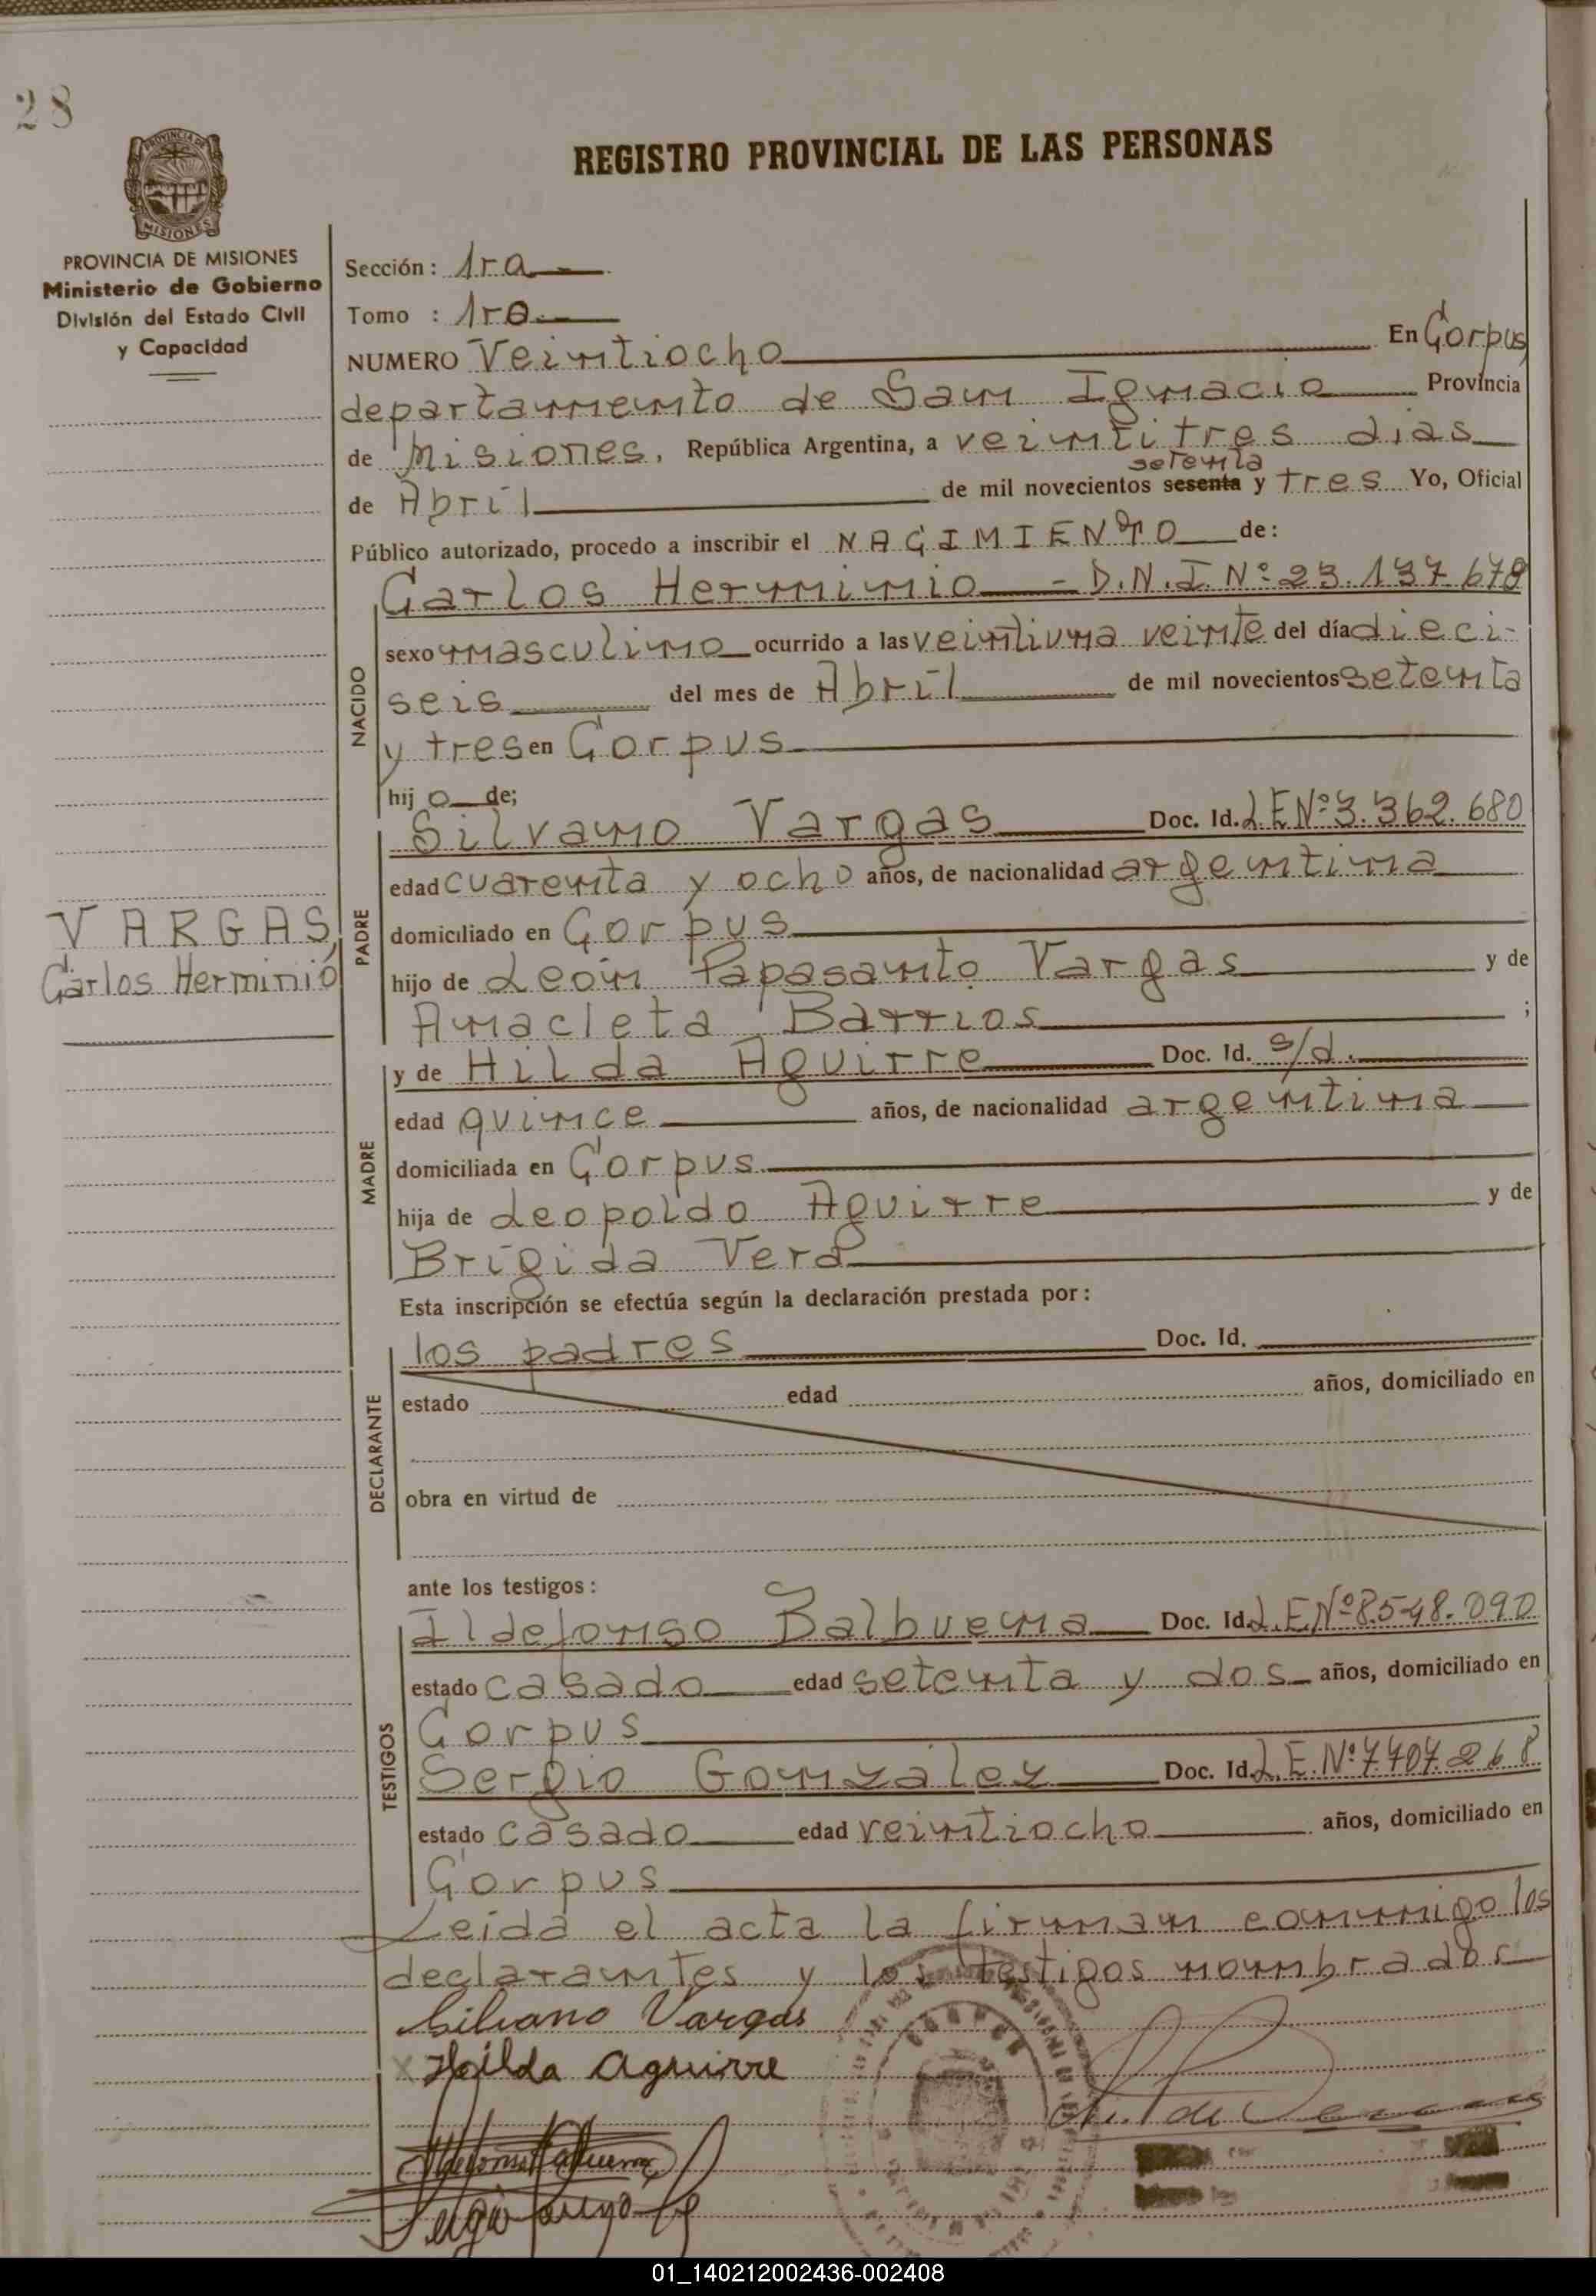 28
PROVINCIA DE
MISIONES
REGISTRO PROVINCIAL DE LAS PERSONAS
PROVINCIA DE MISIONES
Ministerio de Gobierno
División del Estado Civil
y Capacidad
Sección: 1ra
Tomo : 1ro.
NUMERO Veintiocho En Corpus,
departamento de San Ignacio Provincia
de Misiones. República Argentina, a veintitres dias
setenta
de Abril de mil novecientos sesenta y tres Yo, Oficial
Público autorizado, procedo a inscribir el NACIMIENTO de:
NACIDO
Carlos Herminio - D.N.I. Nº 23.137.679
sexo masculino ocurrido a las veintiuna veinte del día dieci-
seis del mes de Abril de mil novecientos setenta
y tres en Corpus
hij o de;
PADRE
Silvano Vargas Doc. Id. L E Nº 3.362.680
edad cuarenta y ocho años, de nacionalidad argentina
domiciliado en Corpus
hijo de León Papasanto Vargas y de
Anacleta Barrios ;
VARGAS,
Carlos Herminio
MADRE
y de Hilda Aguirre Doc. Id. s/d.
edad quince años, de nacionalidad argentina
domiciliada en Corpus
hija de Leopoldo Aguirre y de
Brígida Vera
Esta inscripción se efectúa según la declaración prestada por:
DECLARANTE
los padres Doc. Id.
estado edad años, domiciliado en
obra en virtud de
ante los testigos:
TESTIGOS
Ildefonso Balbuena Doc. Id. L.E. Nº 8.548.090
estado casado edad setenta y dos años, domiciliado en
Corpus
Sergio Gonzalez Doc. Id. L.E. Nº 7.407.268
estado casado edad veintiocho años, domiciliado en
Corpus
Leída el acta la firman conmigo los
declarantes y los testigos nombrados
Silvano Vargas
x Hilda Aguirre
01_140212002436-002408